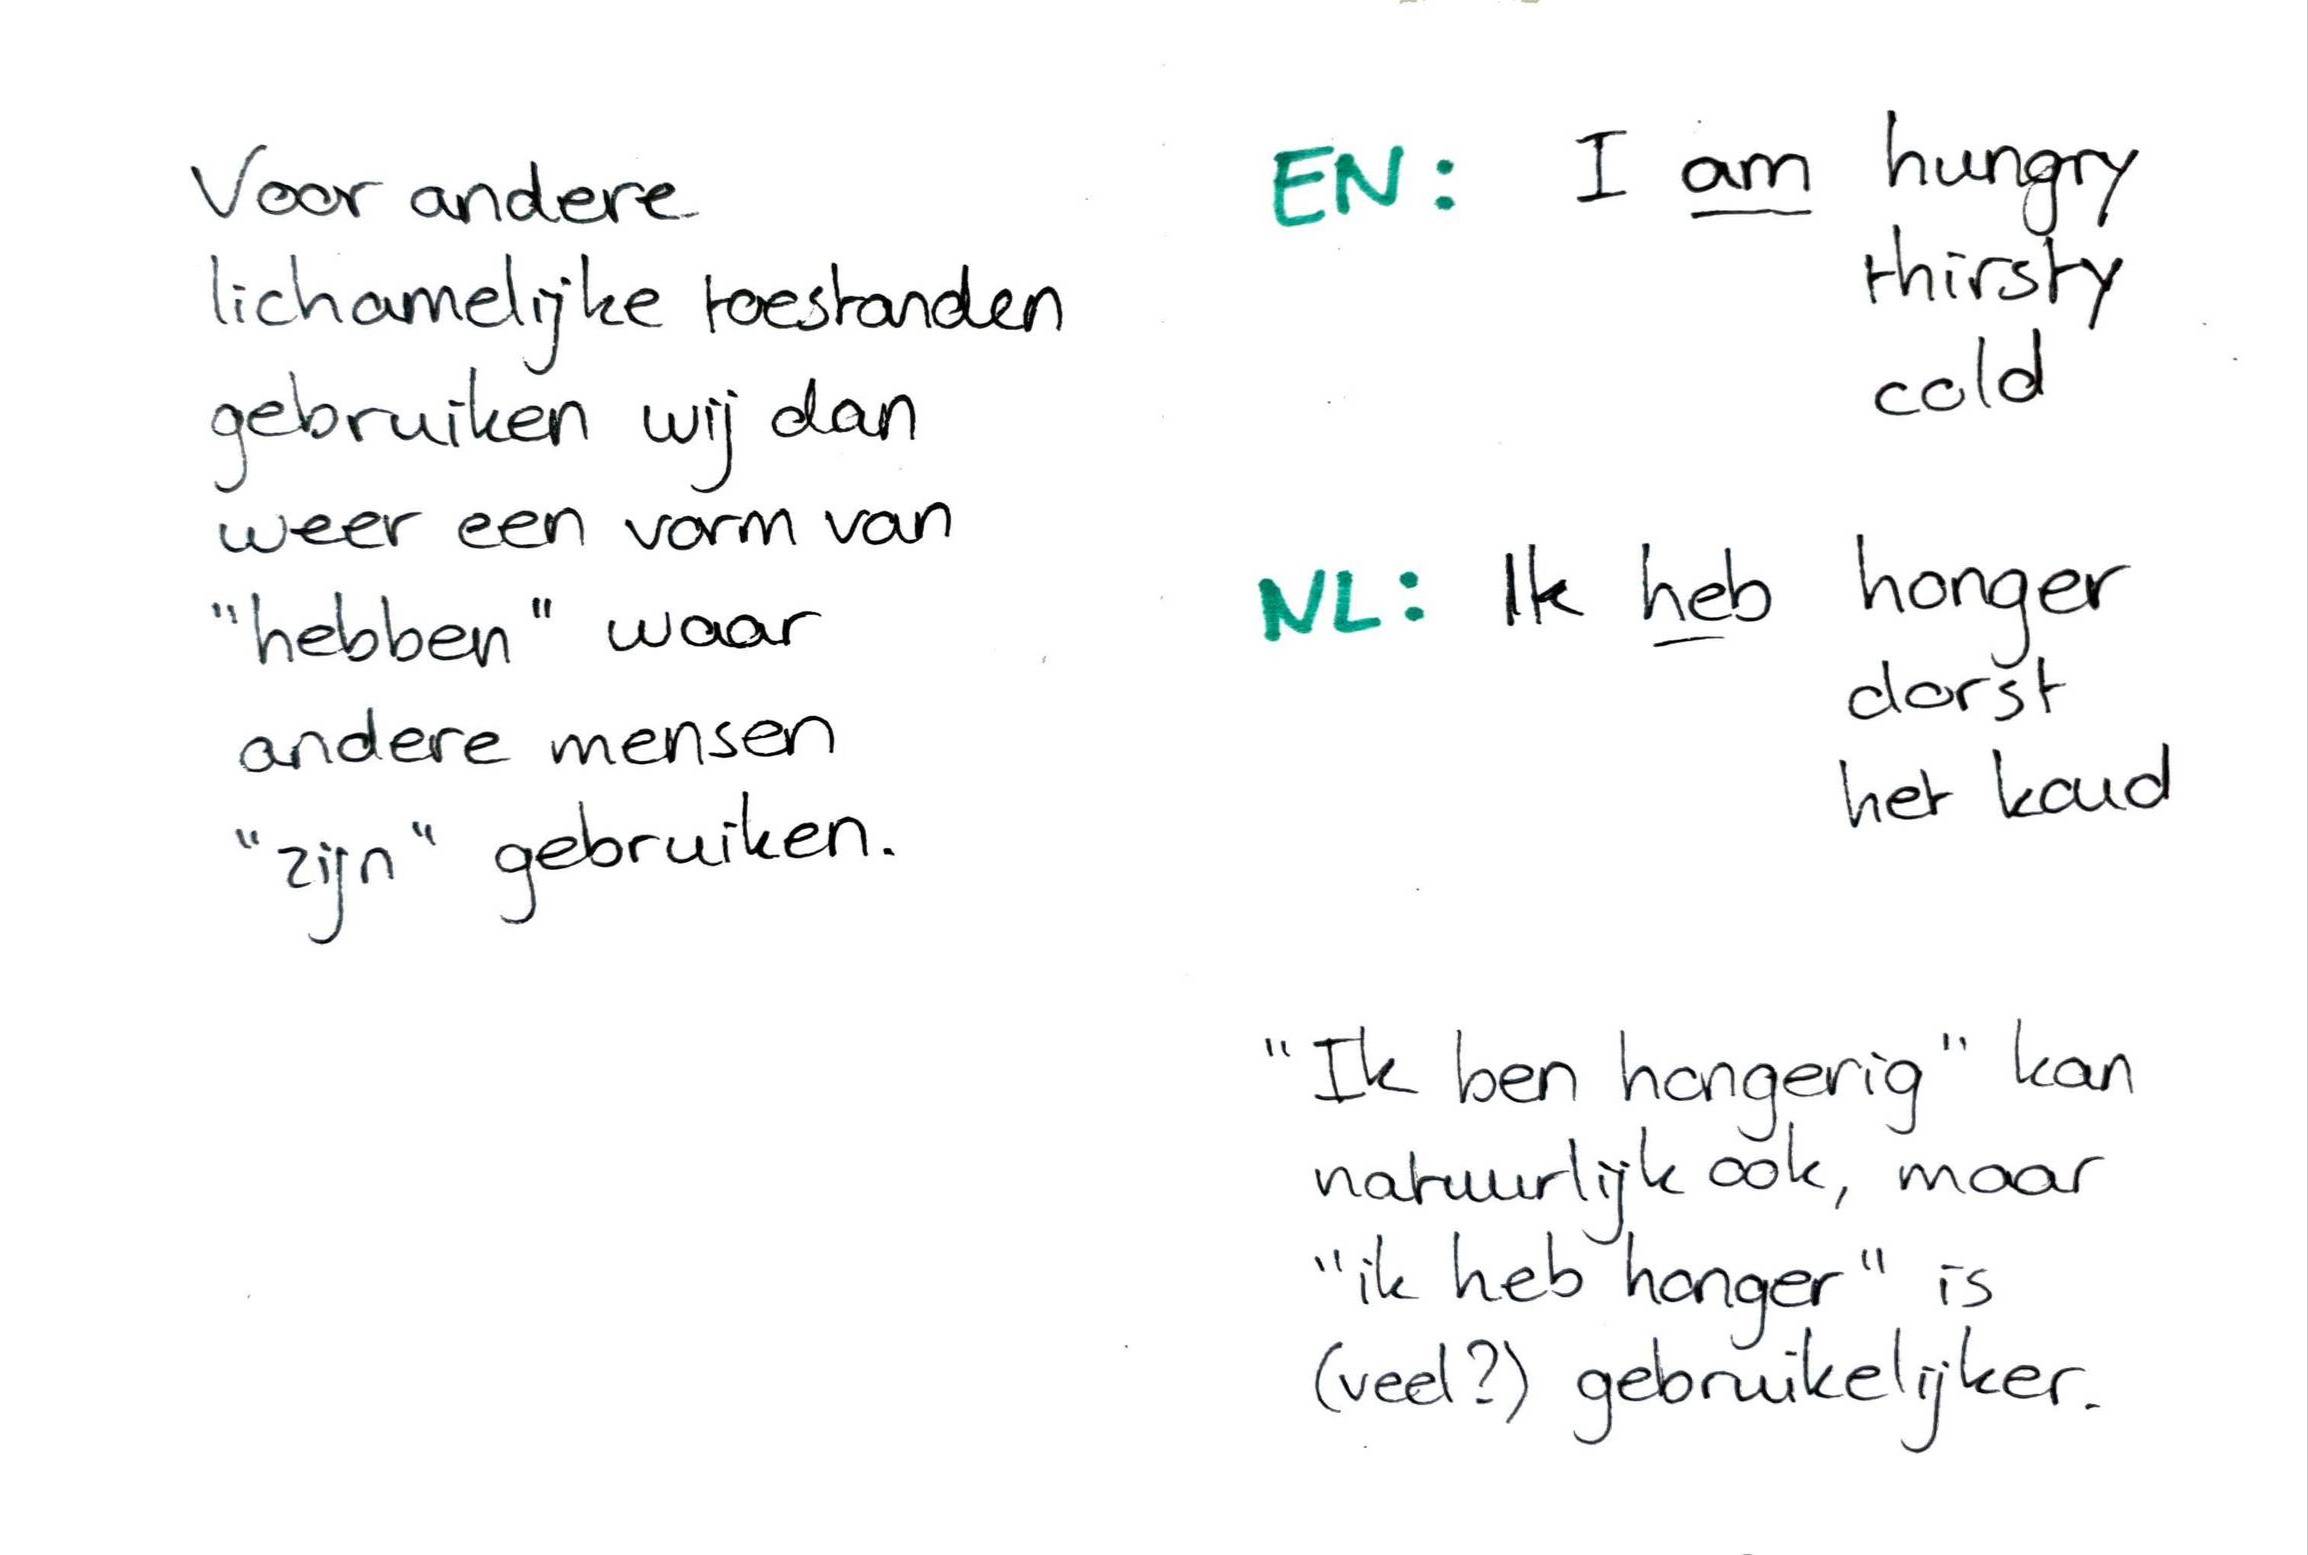 Voor andere
lichamelijke toestanden
gebruiken wij dan
weer een vorm van
"hebben" waar
andere mensen
"zijn" gebruiken.
EN: I am hungry
thirsty
cold
NL: Ik heb honger
dorst
het koud
"Ik ben hongerig" kan
natuurlijk ook, maar
"ik heb honger" is
(veel?) gebruikelijker.